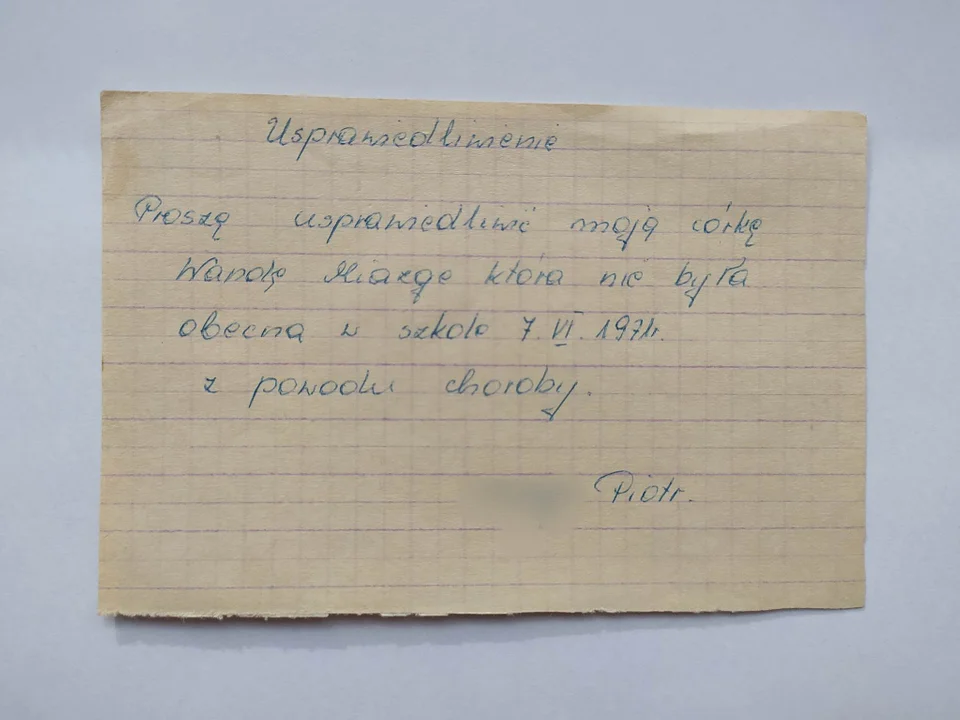 Usprawiedliwienie
Proszę usprawiedliwić moją córkę
Wandę Miazgę która nie była
obecna w szkole 7.VI.1971r.
z powodu choroby.
Piotr.